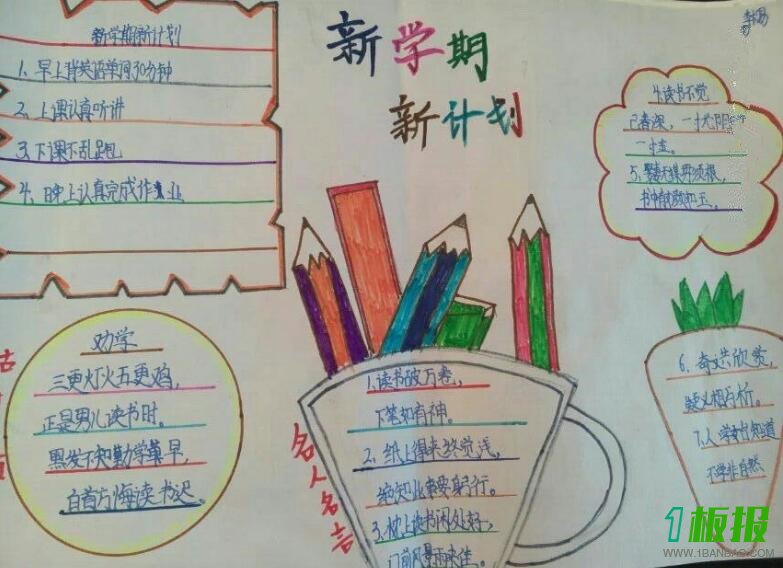 新学期新计划
1、早上背英语单词30分钟
2、上课认真听讲
3、下课不乱跑
4、晚上认真完成作业
新学期
新计划
4、读书不觉
已春深，一寸光阴
一寸金。
5、
书中有
劝学
三更灯火五更鸡，
正是男儿读书时。
黑发不知勤学早，
白首方悔读书迟。
名人名言
1、读书破万卷，
下笔如有神。
2、纸上得来终觉浅，
绝知此事要躬行。
3、枕上读书闲处好，
门前风景雨来佳。
6、奇文共欣赏，
疑义相与析。
7、人学始知道
不学非自然
1板报
WWW.1BANBAO.COM